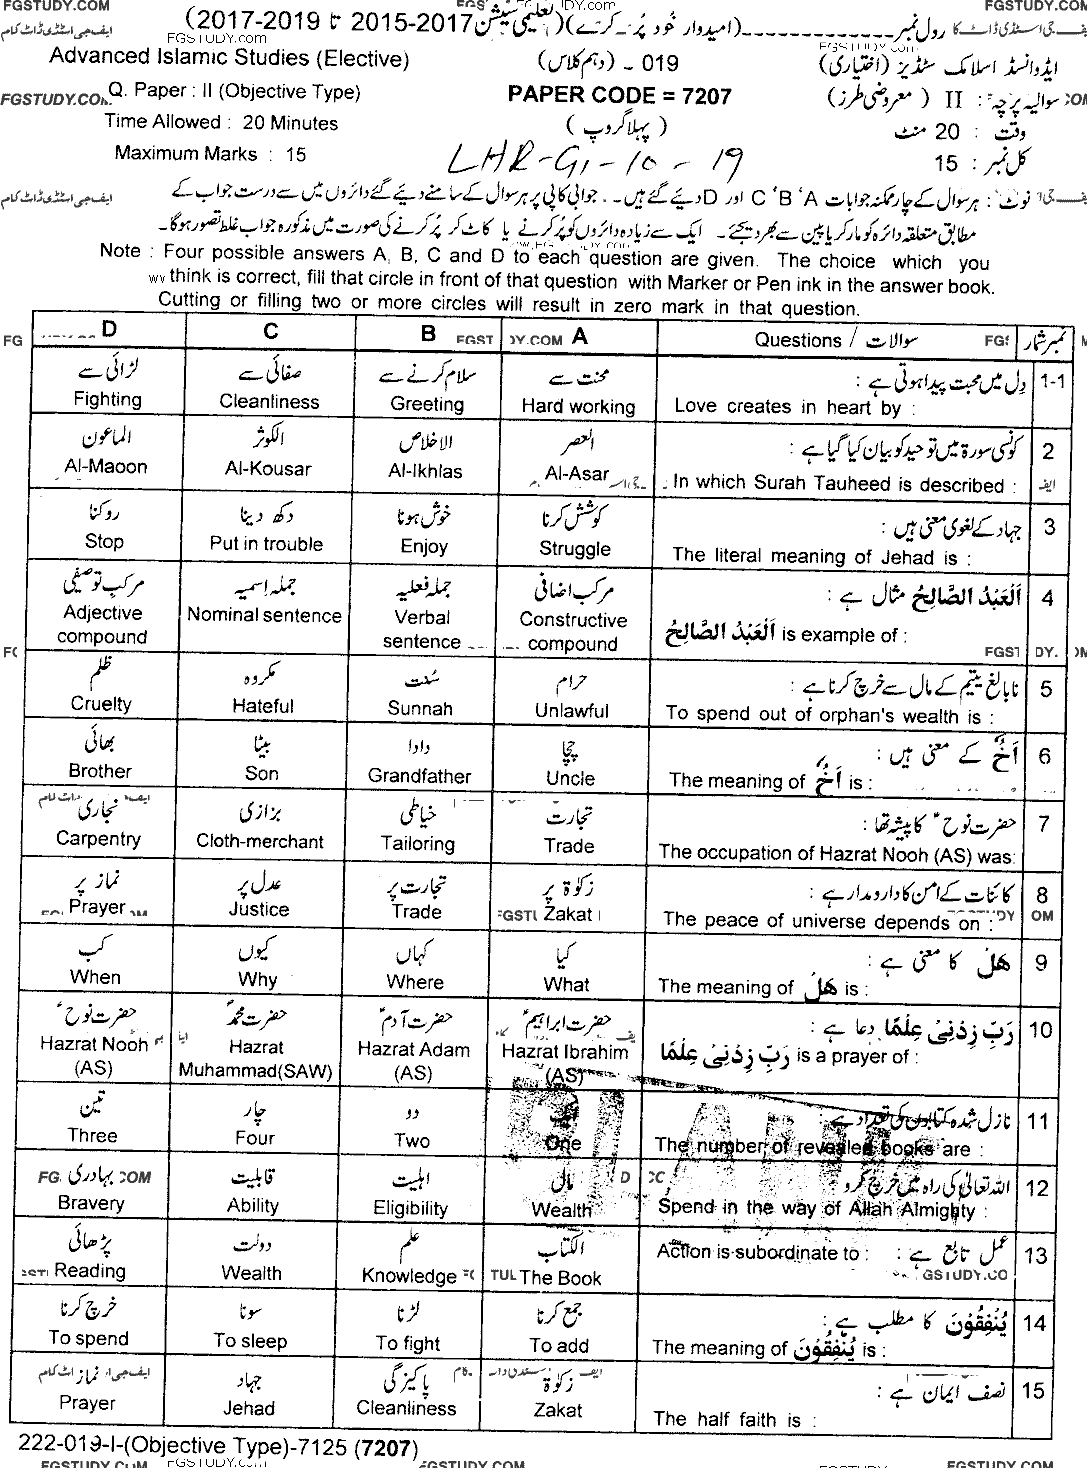 رول نمبر ـــــــــــــ (امیدوار خود پُر کرے) (تعلیمی سیشن 2015-2017 تا 2017-2019)
Advanced Islamic Studies (Elective) 019 - (دہم کلاس) ایڈوانسڈ اسلامک سٹڈیز (اختیاری)
Q. Paper : II (Objective Type) PAPER CODE = 7207 سوالیہ پرچہ : II (معروضی طرز)
Time Allowed : 20 Minutes (پہلا گروپ) وقت : 20 منٹ
Maximum Marks : 15 LHR-G1-10-19 کل نمبر : 15
نوٹ : ہر سوال کے چار ممکنہ جوابات A، B، C اور D دیئے گئے ہیں ۔ جوابی کاپی پر ہر سوال کے سامنے دیئے گئے دائروں میں سے درست جواب کے
مطابق متعلقہ دائرہ کو مارکر یا پین سے بھر دیجئے ۔ ایک سے زیادہ دائروں کو پُر کرنے یا کاٹ کر پُر کرنے کی صورت میں مذکورہ جواب غلط تصور ہوگا۔
Note : Four possible answers A, B, C and D to each question are given. The choice which you
think is correct, fill that circle in front of that question with Marker or Pen ink in the answer book.
Cutting or filling two or more circles will result in zero mark in that question.
D C B A Questions / سوالات نمبر شمار
لڑائی سے صفائی سے سلام کرنے سے محنت سے دِل میں محبت پیدا ہوتی ہے : 1-1
Fighting Cleanliness Greeting Hard working Love creates in heart by :
الماعون الکوثر الاخلاص العصر کونسی سورۃ میں توحید کو بیان کیا گیا ہے : 2
Al-Maoon Al-Kousar Al-Ikhlas Al-Asar In which Surah Tauheed is described :
روکنا دکھ دینا خوش ہونا کوشش کرنا جہاد کے لغوی معنی ہیں : 3
Stop Put in trouble Enjoy Struggle The literal meaning of Jehad is :
مرکب توصیفی جملہ اسمیہ جملہ فعلیہ مرکب اضافی اَلْعَبْدُ الصَّالِحُ مثال ہے : 4
Adjective compound Nominal sentence Verbal sentence Constructive compound اَلْعَبْدُ الصَّالِحُ is example of :
ظلم مکروہ سُنت حرام نابالغ یتیم کے مال سے خرچ کرنا ہے : 5
Cruelty Hateful Sunnah Unlawful To spend out of orphan's wealth is :
بھائی بیٹا دادا چچا اَخٌ کے معنی ہیں : 6
Brother Son Grandfather Uncle The meaning of اَخٌ is :
نجاری بزازی خیاطی تجارت حضرت نوحؑ کا پیشہ تھا : 7
Carpentry Cloth-merchant Tailoring Trade The occupation of Hazrat Nooh (AS) was:
نماز پر عدل پر تجارت پر زکوٰۃ پر کائنات کے امن کا دارومدار ہے : 8
Prayer Justice Trade Zakat The peace of universe depends on :
کب کیوں کہاں کیا هَلْ کا معنی ہے : 9
When Why Where What The meaning of هَلْ is :
حضرت نوحؑ حضرت محمدؐ حضرت آدمؑ حضرت ابراہیمؑ رَبِّ زِدْنِیْ عِلْمًا دعا ہے : 10
Hazrat Nooh (AS) Hazrat Muhammad(SAW) Hazrat Adam (AS) Hazrat Ibrahim (AS) رَبِّ زِدْنِیْ عِلْمًا is a prayer of :
تین چار دو ایک نازل شدہ کتابوں کی تعداد ہے : 11
Three Four Two One The number of revealed books are :
بہادری قابلیت اہلیت مال اللہ تعالیٰ کی راہ میں خرچ کرو 12
Bravery Ability Eligibility Wealth Spend in the way of Allah Almighty :
پڑھائی دولت علم الکتاب عمل تابع ہے : Action is subordinate to : 13
Reading Wealth Knowledge The Book
خرچ کرنا سونا لڑنا جمع کرنا یُنْفِقُوْنَ کا مطلب ہے : 14
To spend To sleep To fight To add The meaning of یُنْفِقُوْنَ is :
نماز جہاد پاکیزگی زکوٰۃ نصف ایمان ہے : 15
Prayer Jehad Cleanliness Zakat The half faith is :
222-019-I-(Objective Type)-7125 (7207)
FGSTUDY.COM